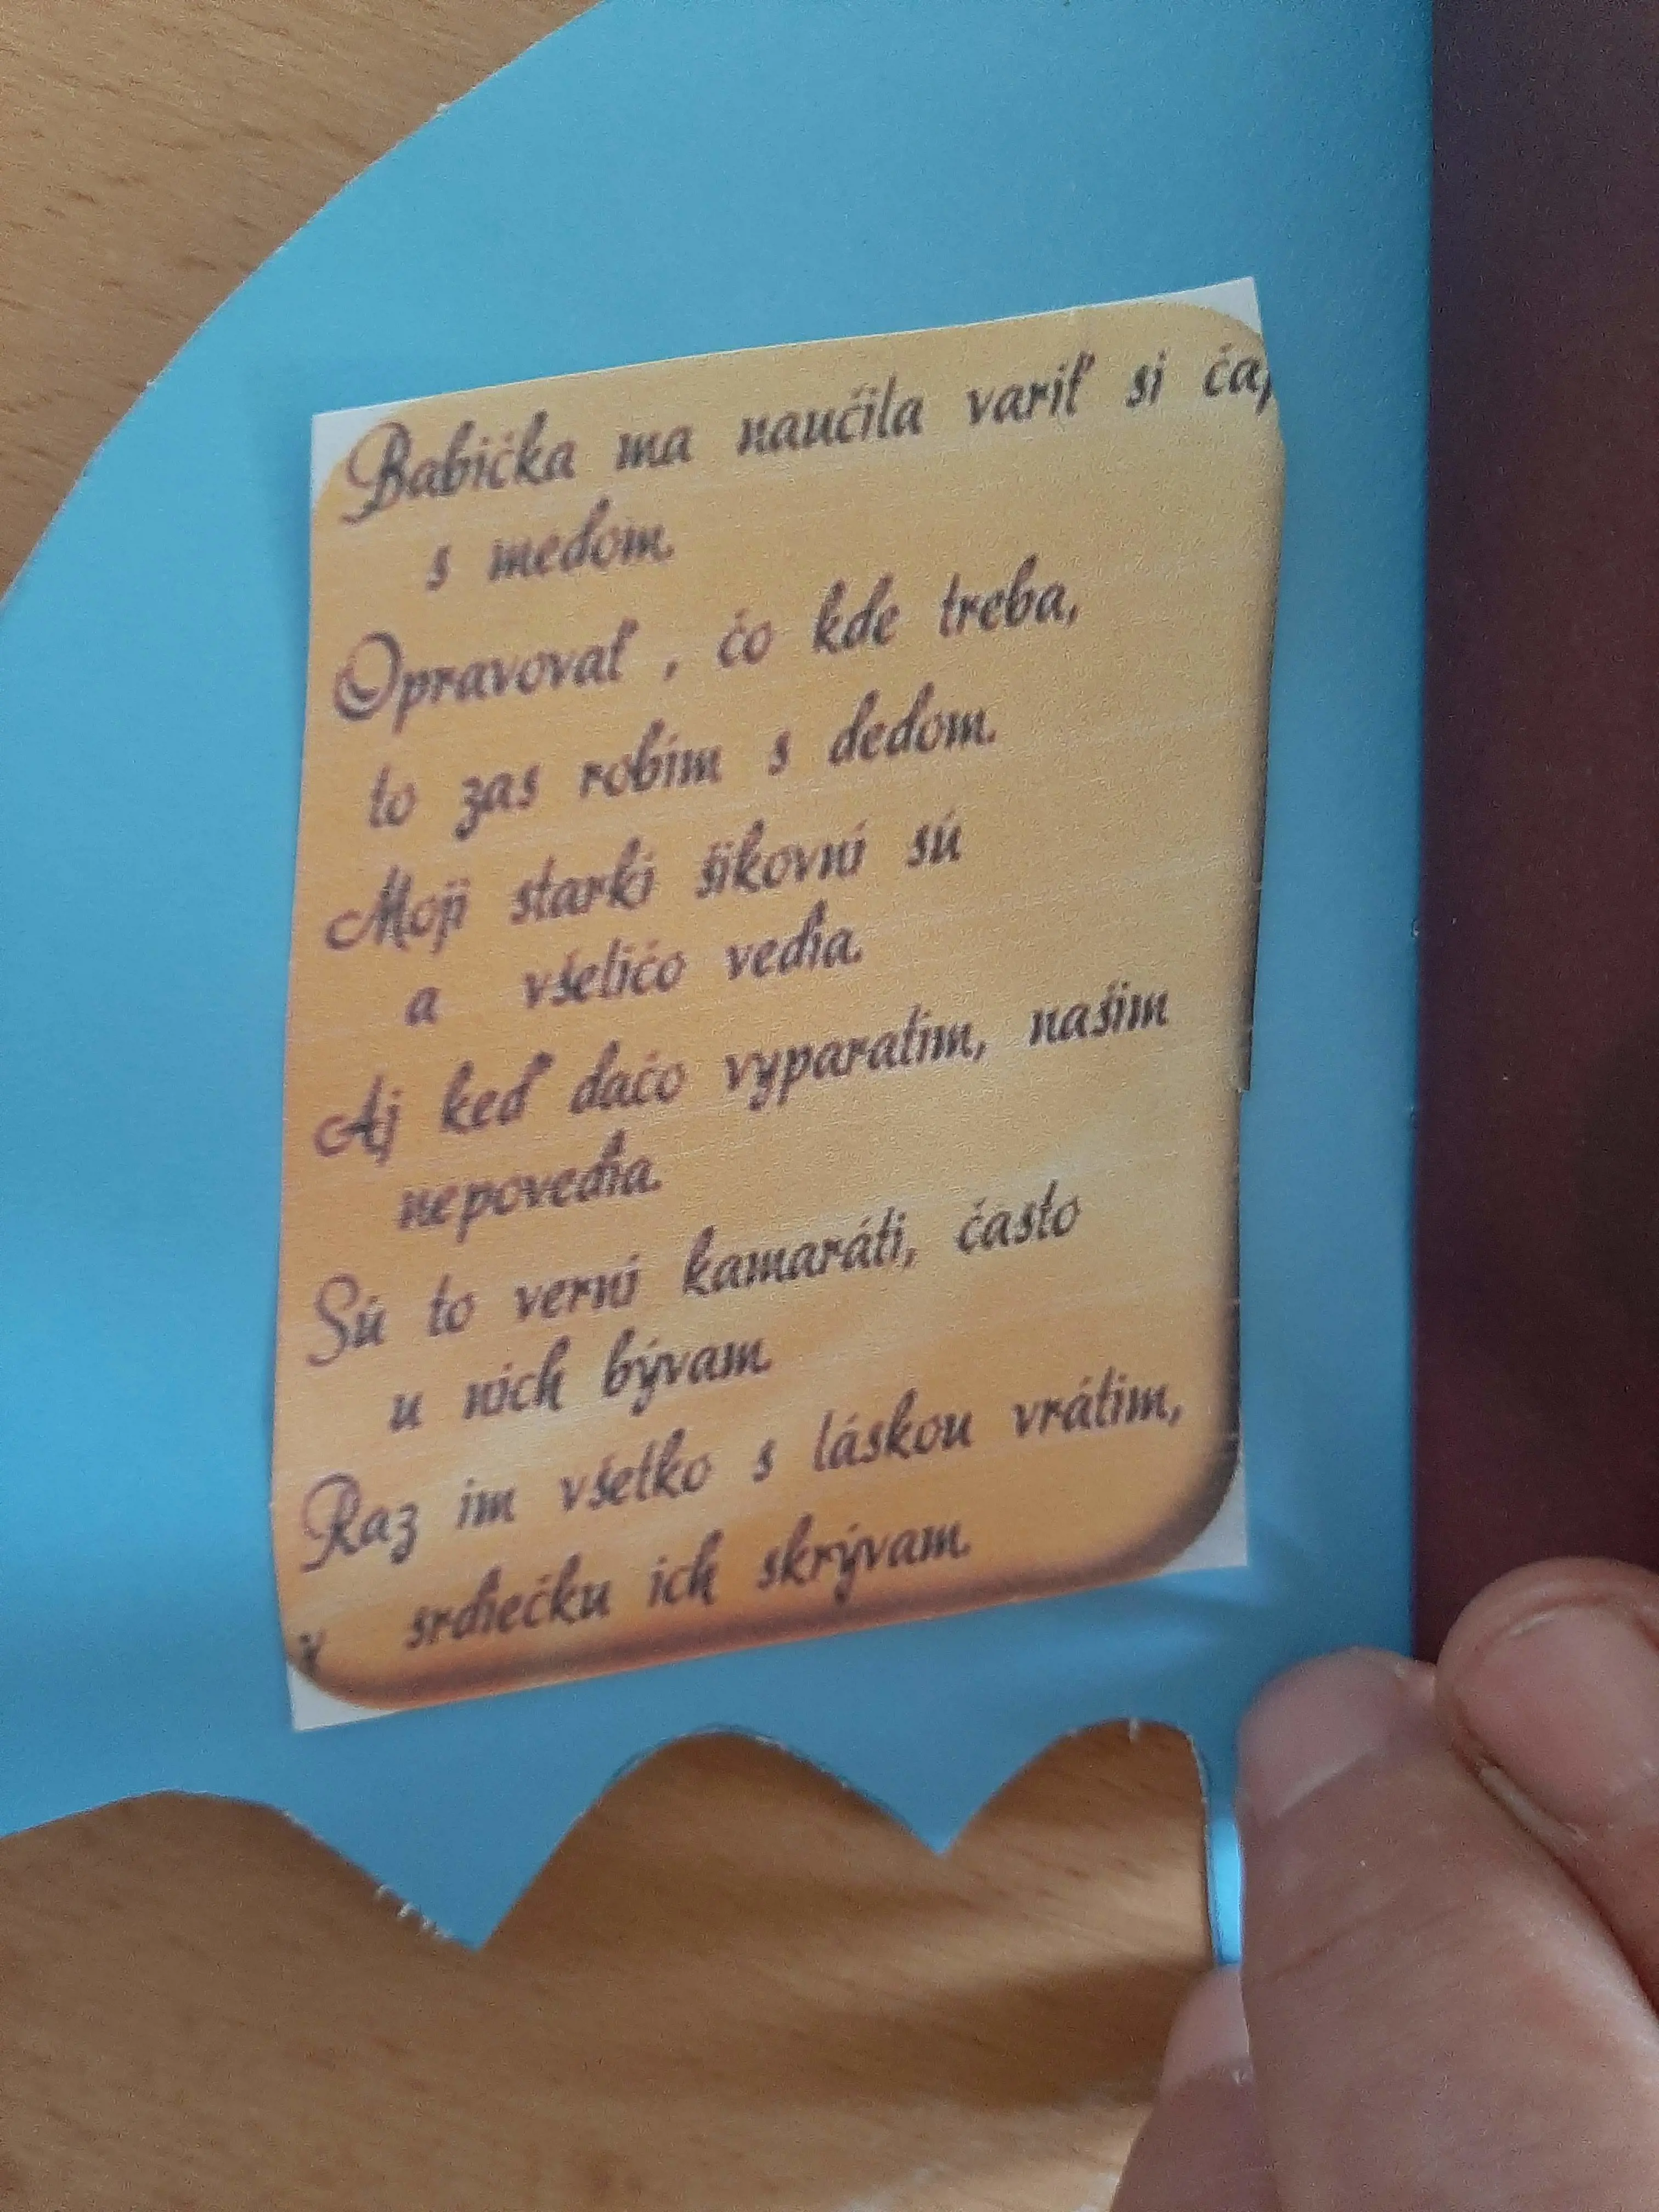 Babička ma naučila variť si čaj
s medom.
Opravovať , čo kde treba,
to zas robím s dedom.
Moji starkí šikovní sú
a všeličo vedia.
Aj keď dačo vyparatím, našim
nepovedia.
Sú to verní kamaráti, často
u nich bývam.
Raz im všetko s láskou vrátim,
v srdiečku ich skrývam.